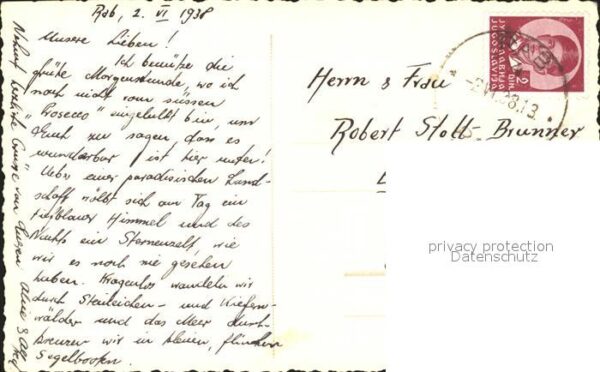 Rab, 2. VI 1938
Unsere Lieben!
Ich benütze die
frühe Morgenstunde, wo ich
noch nicht vom süssen
"Prosecco" eingelullt bin, um
Euch zu sagen dass es
wunderbar ist hier unten!
Ueber einer paradisischen Land-
schaft wölbt sich am Tag ein
tiefblauer Himmel und des
Nachts ein Sternenzelt, wie
wir es noch nie gesehen
haben. Kragenlos wandeln wir
durch Steineichen- und Kiefern-
wälder und das Meer durch-
kreuzen wir in kleinen, flinken
Segelbooten.
herzliche Grüsse von
Herrn & Frau
Robert Stoll-Brunner
RAB
-2.VI.38.13
ЈУГОСЛАВИЈА
JUGOSLAVIJA
2
DIN.
privacy protection
Datenschutz